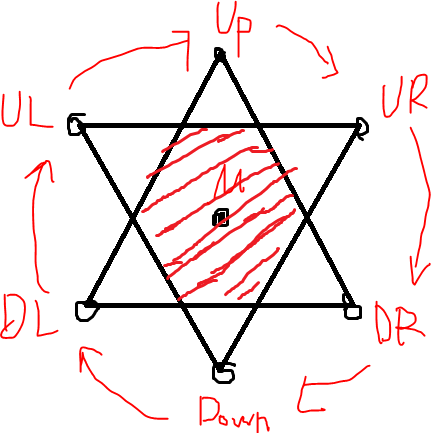 Up
UL
UR
M
DL
DR
Down